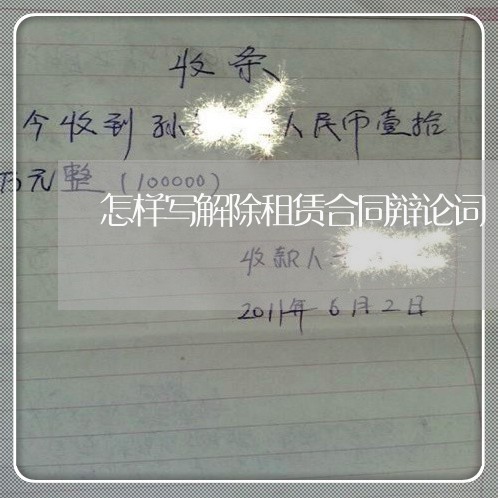 收条
今收到孙 人民币壹拾
万元整（100000）
怎样写解除租赁合同辩论词
收款人
2011年6月2日